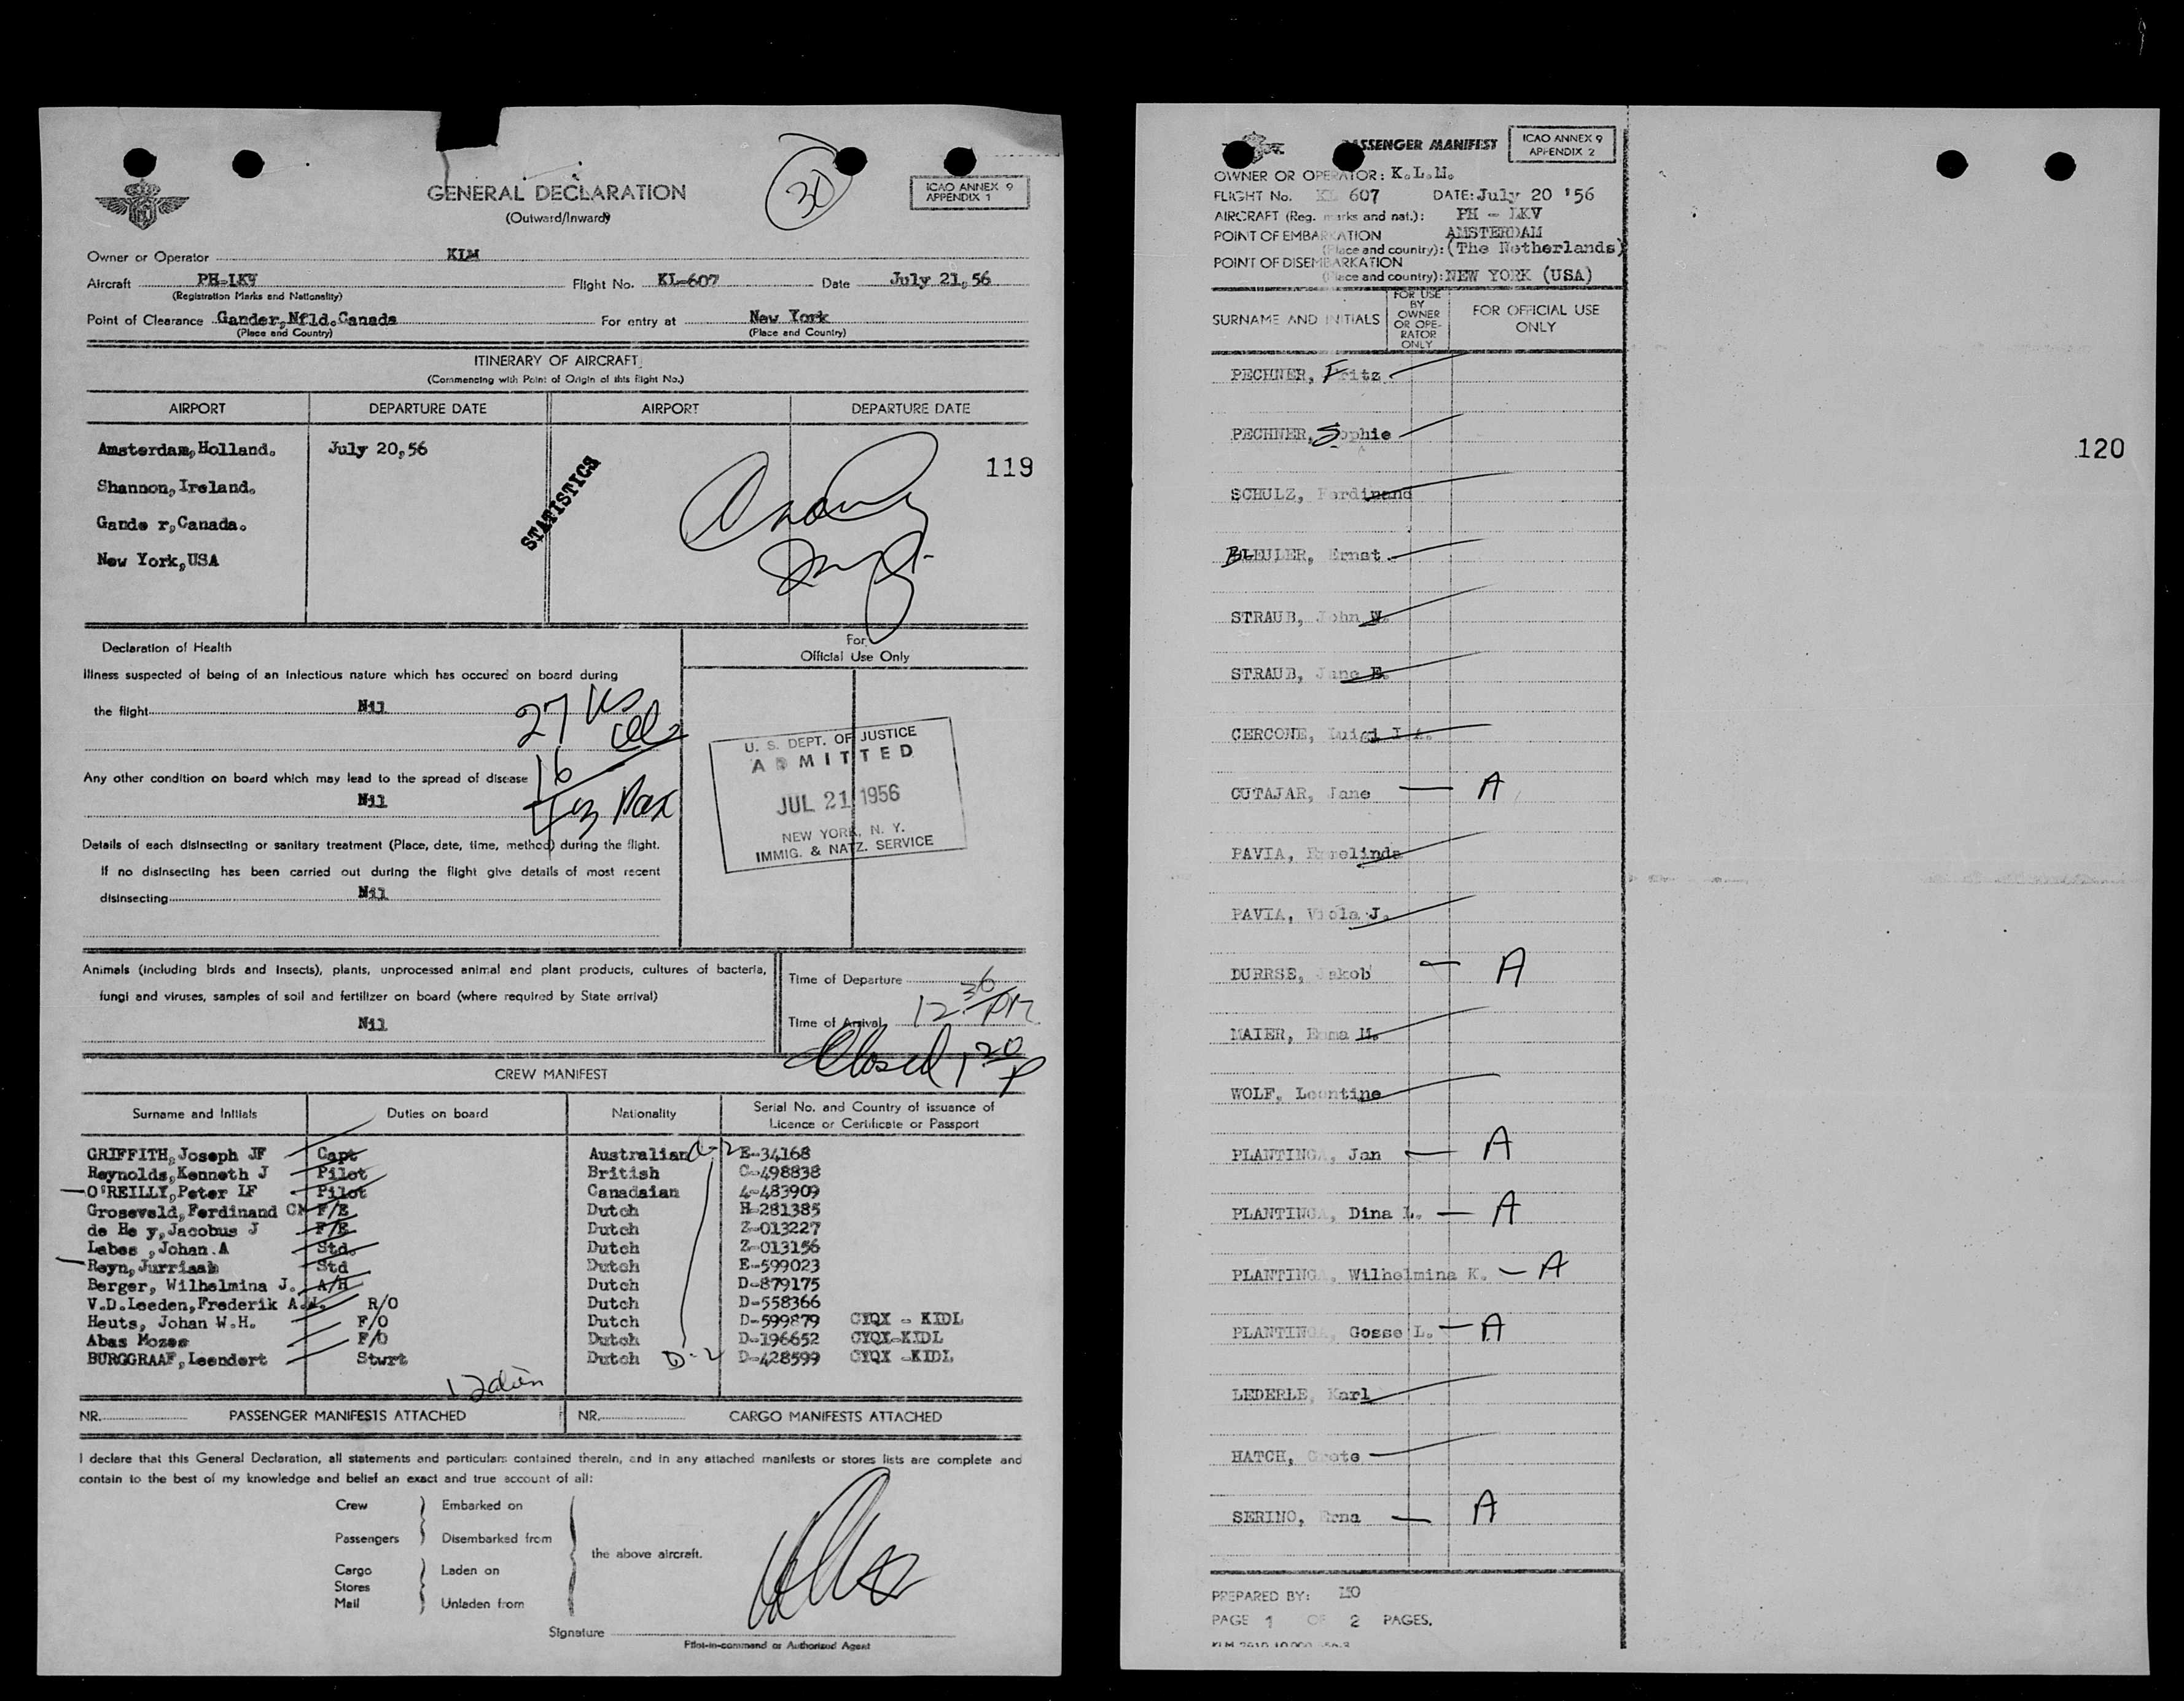 GENERAL DECLARATION
(Outward/Inward)
30
ICAO ANNEX 9
APPENDIX 1
Owner or Operator KLM
Aircraft PH-LKV Flight No. KL-607 Date July 21,56
(Registration Marks and Nationality)
Point of Clearance Gander,Nfld.Canada For entry at New York
(Place and Country) (Place and Country)
ITINERARY OF AIRCRAFT
(Commencing with Point of Origin of this flight No.)
AIRPORT DEPARTURE DATE AIRPORT DEPARTURE DATE
Amsterdam,Holland. July 20,56
119
Shannon,Ireland.
STATISTICS
Gande r,Canada.
New York,USA
Declaration of Health
For
Official Use Only
Illness suspected of being of an Infectious nature which has occured on board during
the flight Nil
27 US
16
43 Pax
Any other condition on board which may lead to the spread of disease
Nil
U. S. DEPT. OF JUSTICE
ADMITTED
JUL 21 1956
NEW YORK, N. Y.
IMMIG. & NATZ. SERVICE
Details of each disinsecting or sanitary treatment (Place, date, time, method) during the flight.
If no disinsecting has been carried out during the flight give details of most recent
disinsecting Nil
Animals (including birds and insects), plants, unprocessed animal and plant products, cultures of bacteria,
fungi and viruses, samples of soil and fertilizer on board (where required by State arrival)
Nil
Time of Departure
Time of Arrival 12 36 PM
Closed 1 20 P
CREW MANIFEST
Surname and Initials Duties on board Nationality Serial No. and Country of issuance of
Licence or Certificate or Passport
GRIFFITH,Joseph JF Capt Australian D-2 E-34168
Reynolds,Kenneth J Pilot British C-498838
O'REILLY,Peter LF Pilot Canadaian 4-483909
Groseveld,Ferdinand CM F/E Dutch H-281385
de He y,Jacobus J F/E Dutch Z-013227
Labes ,Johan.A Std. Dutch Z-013156
Reyn,Jurriaah Std Dutch E-599023
Berger, Wilhelmina J. A/H Dutch D-879175
V.D.Leeden,Frederik A.W. R/O Dutch D-558366
Heuts, Johan W.H. F/O Dutch D-599879 CYQX - KIDL
Abas Mozes F/O Dutch D-196652 CYQX-KIDL
BURGGRAAF,Leendert Stwrt Dutch D-2 D-428599 CYQX -KIDL
NR. PASSENGER MANIFESTS ATTACHED NR. CARGO MANIFESTS ATTACHED
I declare that this General Declaration, all statements and particulars contained therein, and in any attached manifests or stores lists are complete and
contain to the best of my knowledge and belief an exact and true account of all:
Crew Embarked on
Passengers Disembarked from
the above aircraft.
Cargo Laden on
Stores
Mail Unladen from
Signature
Pilot-in-command or Authorized Agent
PASSENGER MANIFEST
ICAO ANNEX 9
APPENDIX 2
OWNER OR OPERATOR: K.L.M.
FLIGHT No. KL 607 DATE: July 20 '56
AIRCRAFT (Reg. marks and nat.): PH - LKV
POINT OF EMBARKATION AMSTERDAM
(Place and country): (The Netherlands)
POINT OF DISEMBARKATION
(Place and country): NEW YORK (USA)
SURNAME AND INITIALS
FOR USE
BY
OWNER
OR OPE-
RATOR
ONLY
FOR OFFICIAL USE
ONLY
PECHNER, Fritz
PECHNER, Sophie
120
SCHULZ, Ferdinand
BLEULER, Ernst
STRAUB, John W.
STRAUB, Jane E.
CERCONE, Luigi I.A.
CUTAJAR, Jane — A
PAVIA, Ermelinda
PAVIA, Viola J.
DURRSE, Jakob — A
MAIER, Emma M.
WOLF, Leontine
PLANTINGA, Jan — A
PLANTINGA, Dina L. — A
PLANTINGA, Wilhelmina K. — A
PLANTINGA, Gosse L. — A
LEDERLE, Karl
HATCH, Grete
SERINO, Erna — A
PREPARED BY: MO
PAGE 1 OF 2 PAGES.